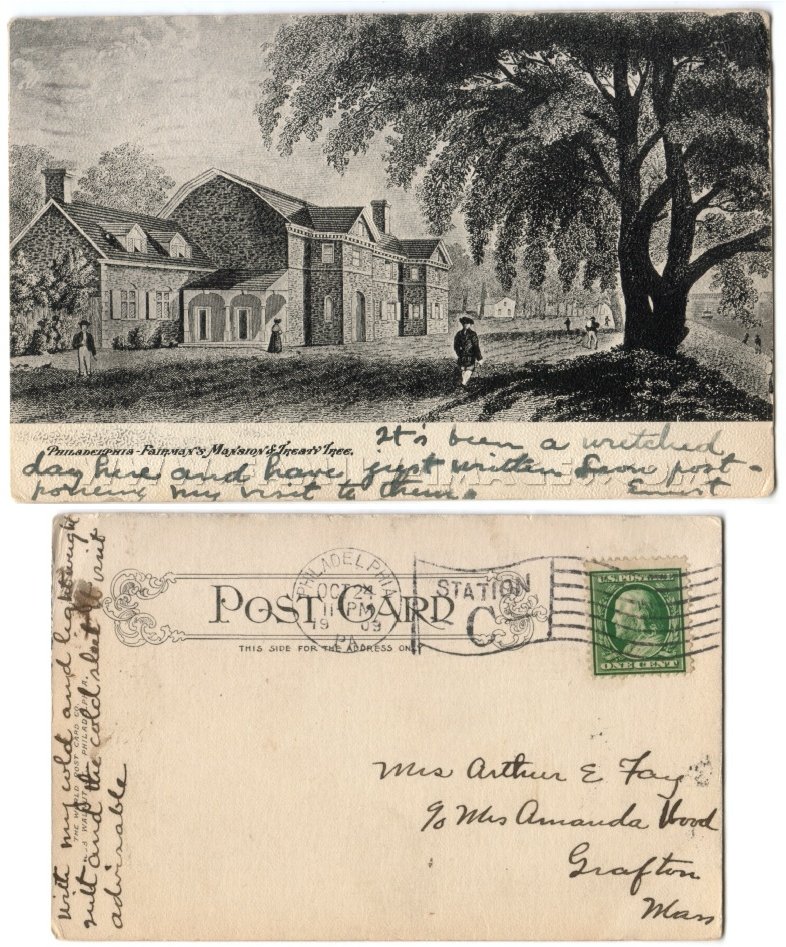 PHILADELPHIA - FAIRMAN'S MANSION & TREATY TREE.
It's been a wretched
day here and have just written Leon post-
poneing my visit to them. Ernest
POST CARD
THIS SIDE FOR THE ADDRESS ONLY
PHILADELPHIA
OCT 24
11 PM
1909
PA.
STATION
C
U.S. POSTAGE
ONE CENT
Mrs Arthur E Fay
c/o Mrs Amanda Wood
Grafton
Mass
with my cold and light weight
suit and the cold sleet visit
advisable
THE WORLD POST CARD CO.
WALNUT ST. PHILADELPHIA.